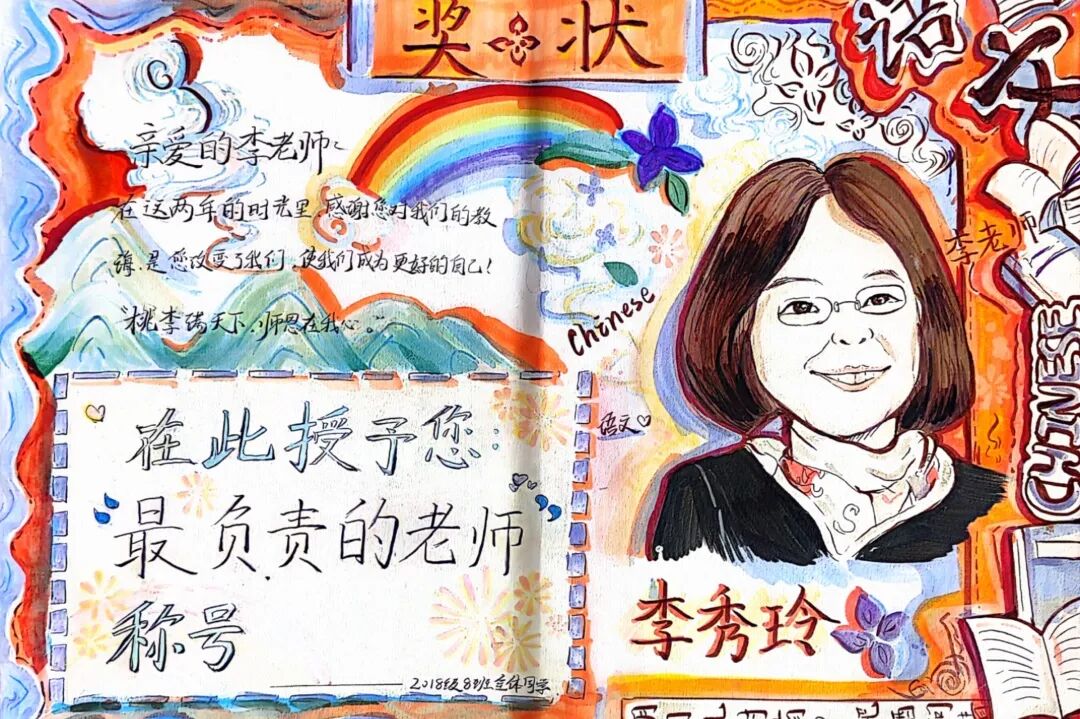 奖状
语文
亲爱的李老师：
在这两年的时光里，感谢您对我们的教
诲，是您改变了我们，使我们成为更好的自己！
“桃李满天下，师恩在我心。”
李老师
Chinese
语文
CHINESE
在此授予您：
“最负责的老师”
称号
2018级8班全体同学
李秀玲